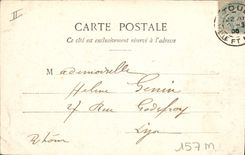 II
CARTE POSTALE
Ce côté est exclusivement réservé à l'adresse
TOU
Mademoiselle
Helene Genin
27 Rue Godefroy
Lyon
Rhône
157M